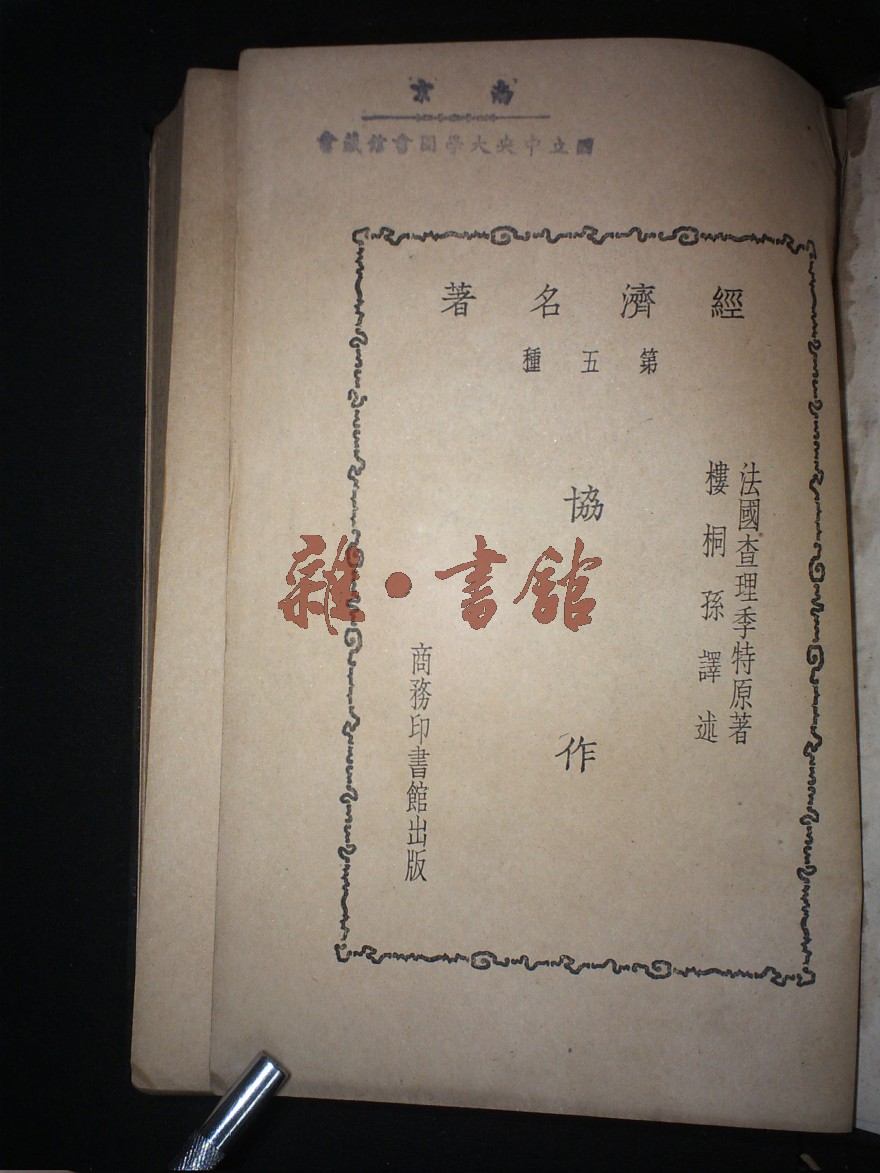 南京
國立中央大學圖書館藏書
經濟名著
第五種
法國查理季特原著
樓桐孫譯述
協作
商務印書館出版
雜·書館